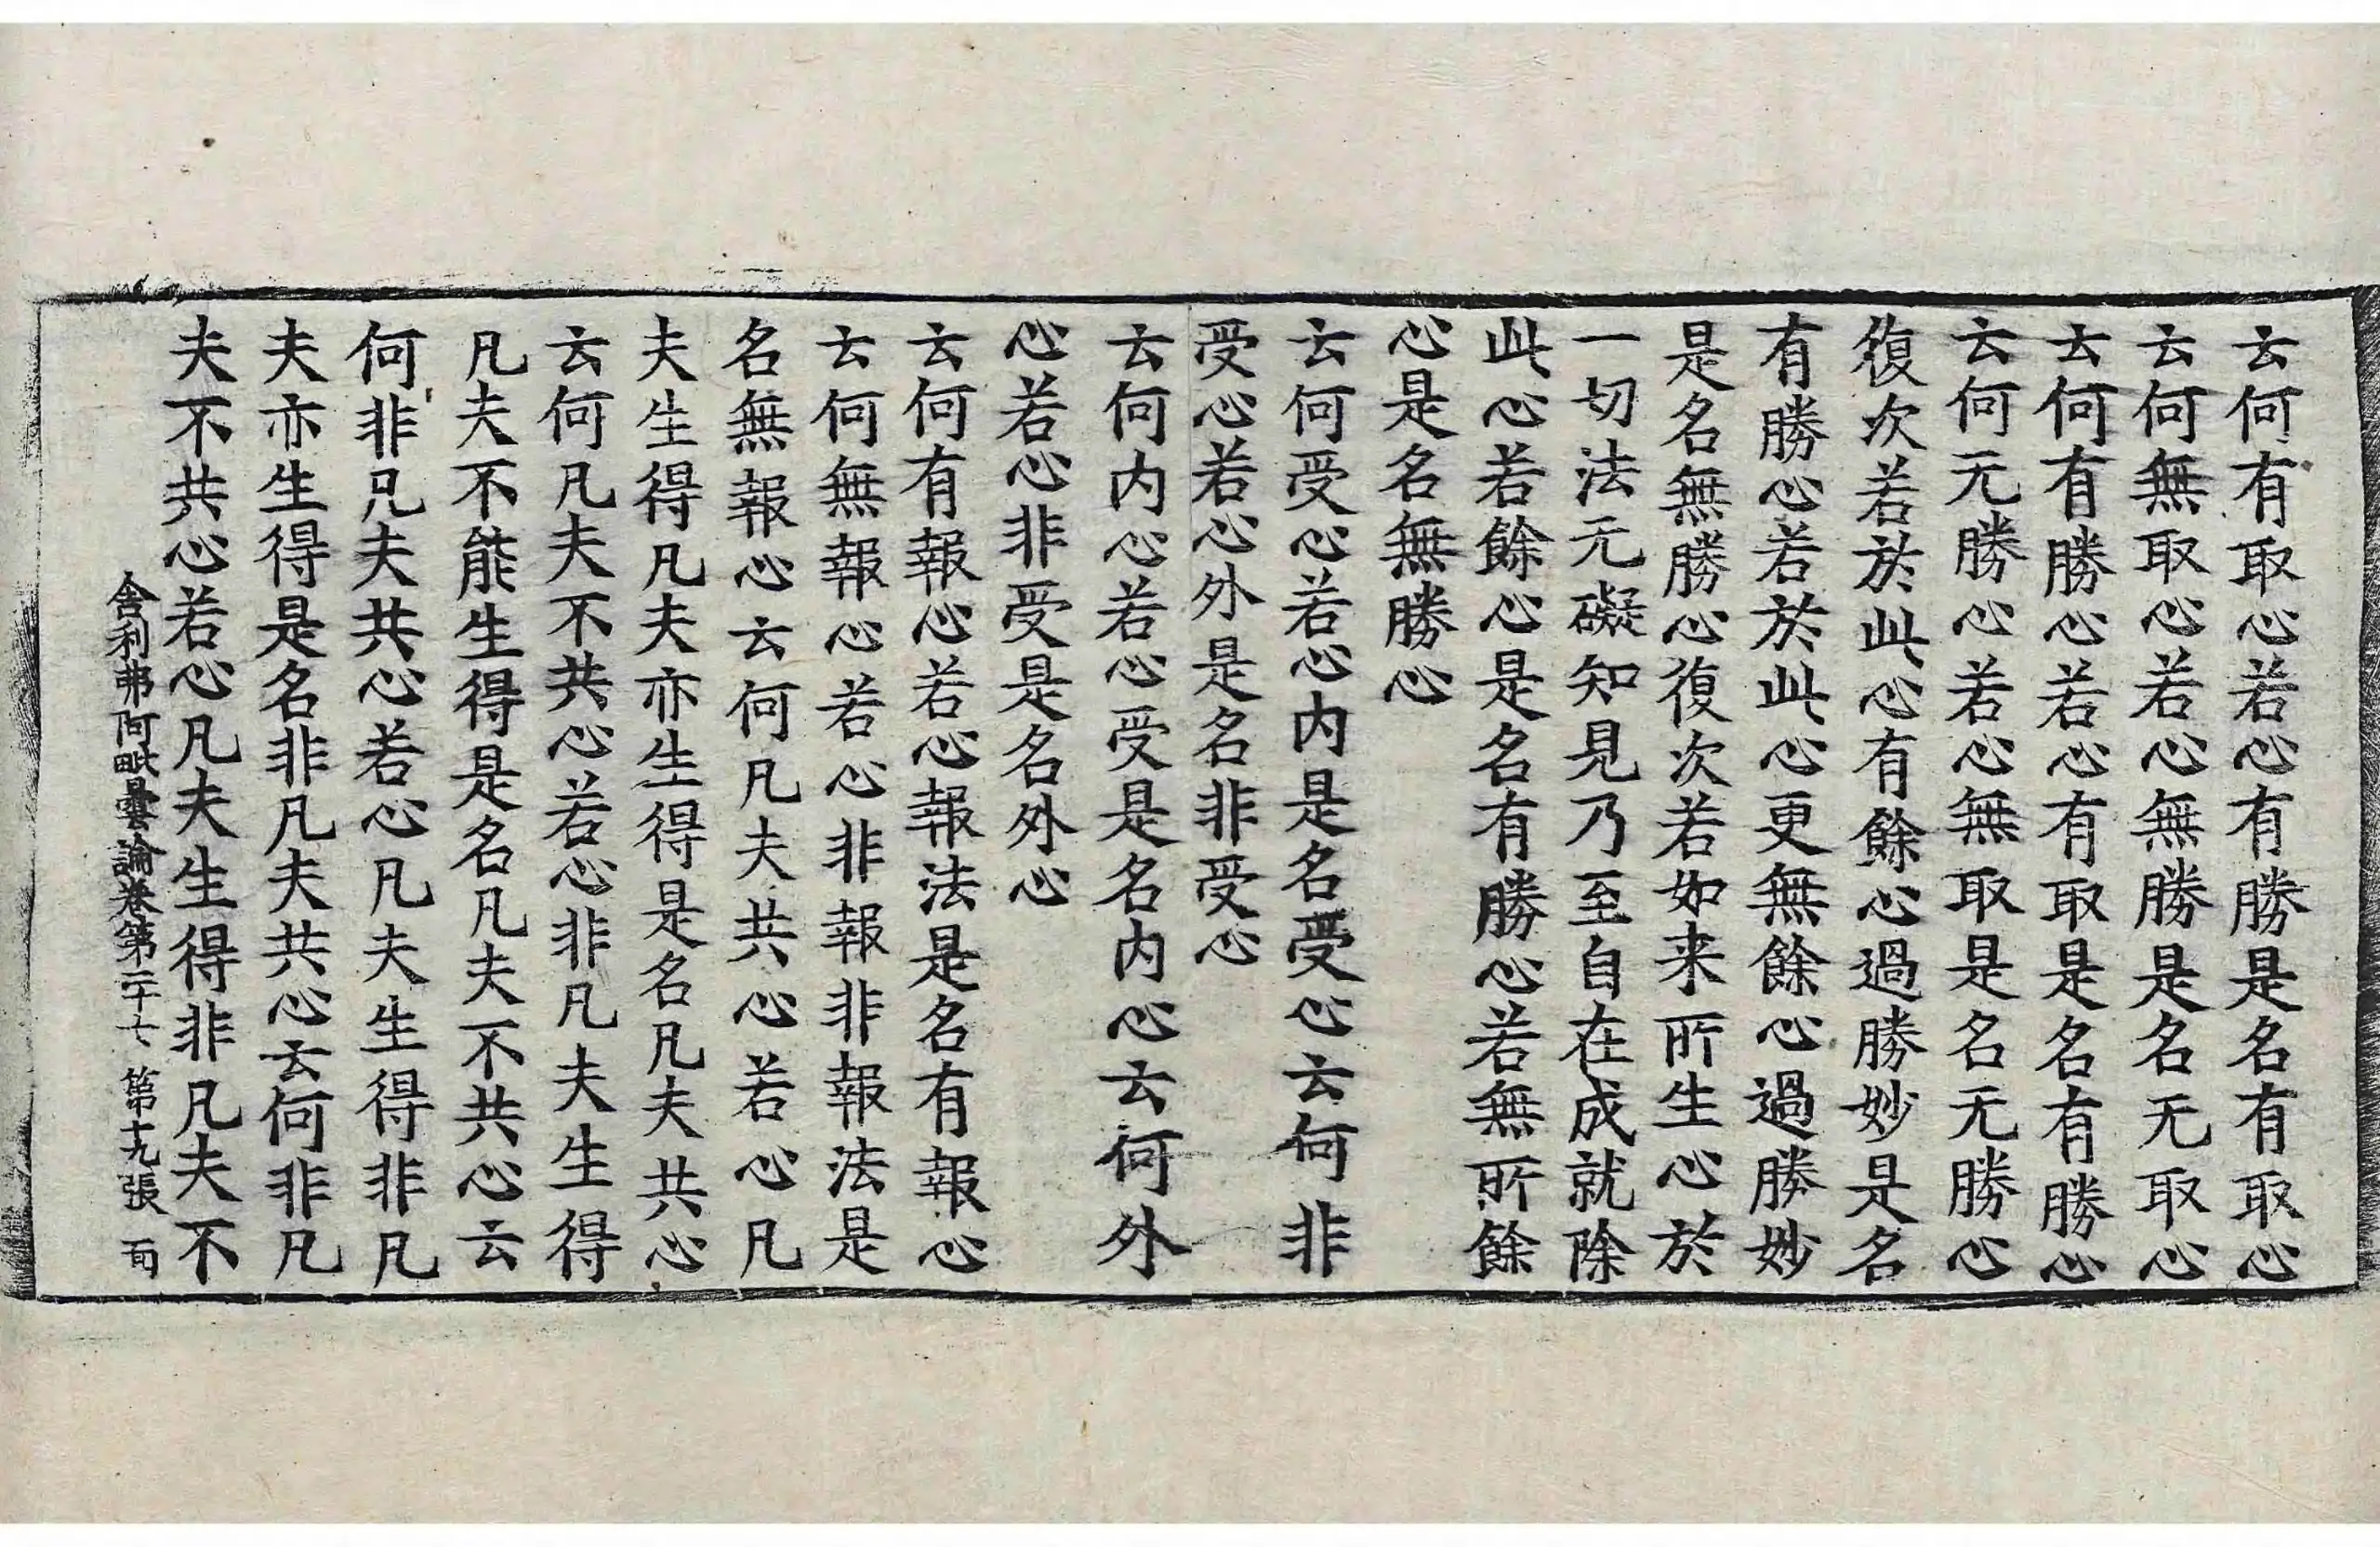 云何有取心若心有勝是名有取心
云何無取心若心無勝是名无取心
云何有勝心若心有取是名有勝心
云何无勝心若心無取是名无勝心
復次若於此心有餘心過勝妙是名
有勝心若於此心更無餘心過勝妙
是名無勝心復次若如来所生心於
一切法无礙知見乃至自在成就除
此心若餘心是名有勝心若無所餘
心是名無勝心
云何受心若心内是名受心云何非
受心若心外是名非受心
云何内心若心受是名内心云何外
心若心非受是名外心
云何有報心若心報法是名有報心
云何無報心若心非報非報法是
名無報心云何凡夫共心若心凡
夫生得凡夫亦生得是名凡夫共心
云何凡夫不共心若心非凡夫生得
凡夫不能生得是名凡夫不共心云
何非凡夫共心若心凡夫生得非凡
夫亦生得是名非凡夫共心云何非凡
夫不共心若心凡夫生得非凡夫不
舍利弗阿毗曇論卷第二十七 第十九張 而